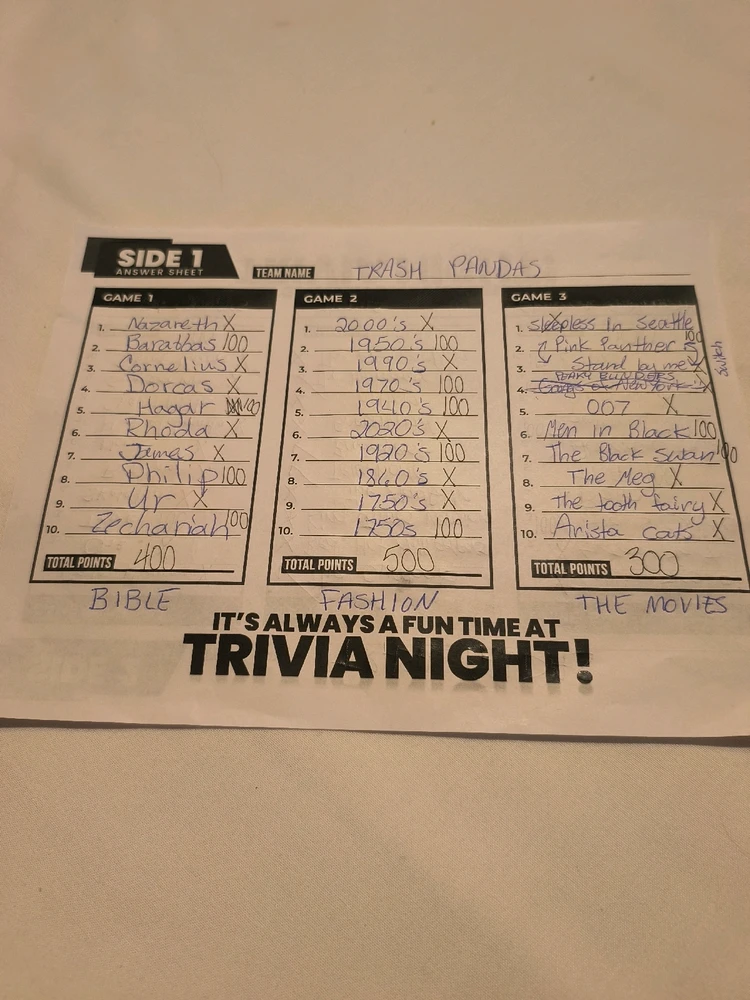 SIDE 1
ANSWER SHEET
TEAM NAME TRASH PANDAS
GAME 1
1. Nazareth X
2. Barabbas 100
3. Cornelius X
4. Dorcas X
5. Hagar 100
6. Rhoda X
7. James X
8. Philip 100
9. Ur X
10. Zechariah 100
TOTAL POINTS 400
BIBLE
GAME 2
1. 2000's X
2. 1950's 100
3. 1990's X
4. 1970's 100
5. 1940's 100
6. 2020's X
7. 1920's 100
8. 1860's X
9. 1750's X
10. 1750s 100
TOTAL POINTS 500
FASHION
GAME 3
1. Sleepless In Seattle X
2. Pink Panther 100
3. Stand by me X
Switch
PEAKY BLINDERS
4. Gangs of New York X
5. 007 X
6. Men in Black 100
7. The Black Swan 100
8. The Meg X
9. The tooth fairy X
10. Arista cats X
TOTAL POINTS 300
THE MOVIES
IT'S ALWAYS A FUN TIME AT
TRIVIA NIGHT!